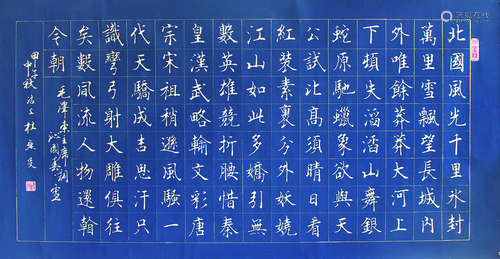 北國風光千里氷封
萬里雪飄望長城內
外唯餘莽莽大河上
下頓失滔滔山舞銀
蛇原馳蠟象欲與天
公試比高須晴日看
紅裝素裹分外妖嬈
江山如此多嬌引無
數英雄競折腰惜秦
皇漢武略輸文彩唐
宗宋祖稍遜風騷一
代天驕成吉思汗只
識彎弓射大雕俱往
矣數風流人物還看
今朝
毛澤東主席詞
沁園春 雪
甲子
中秋